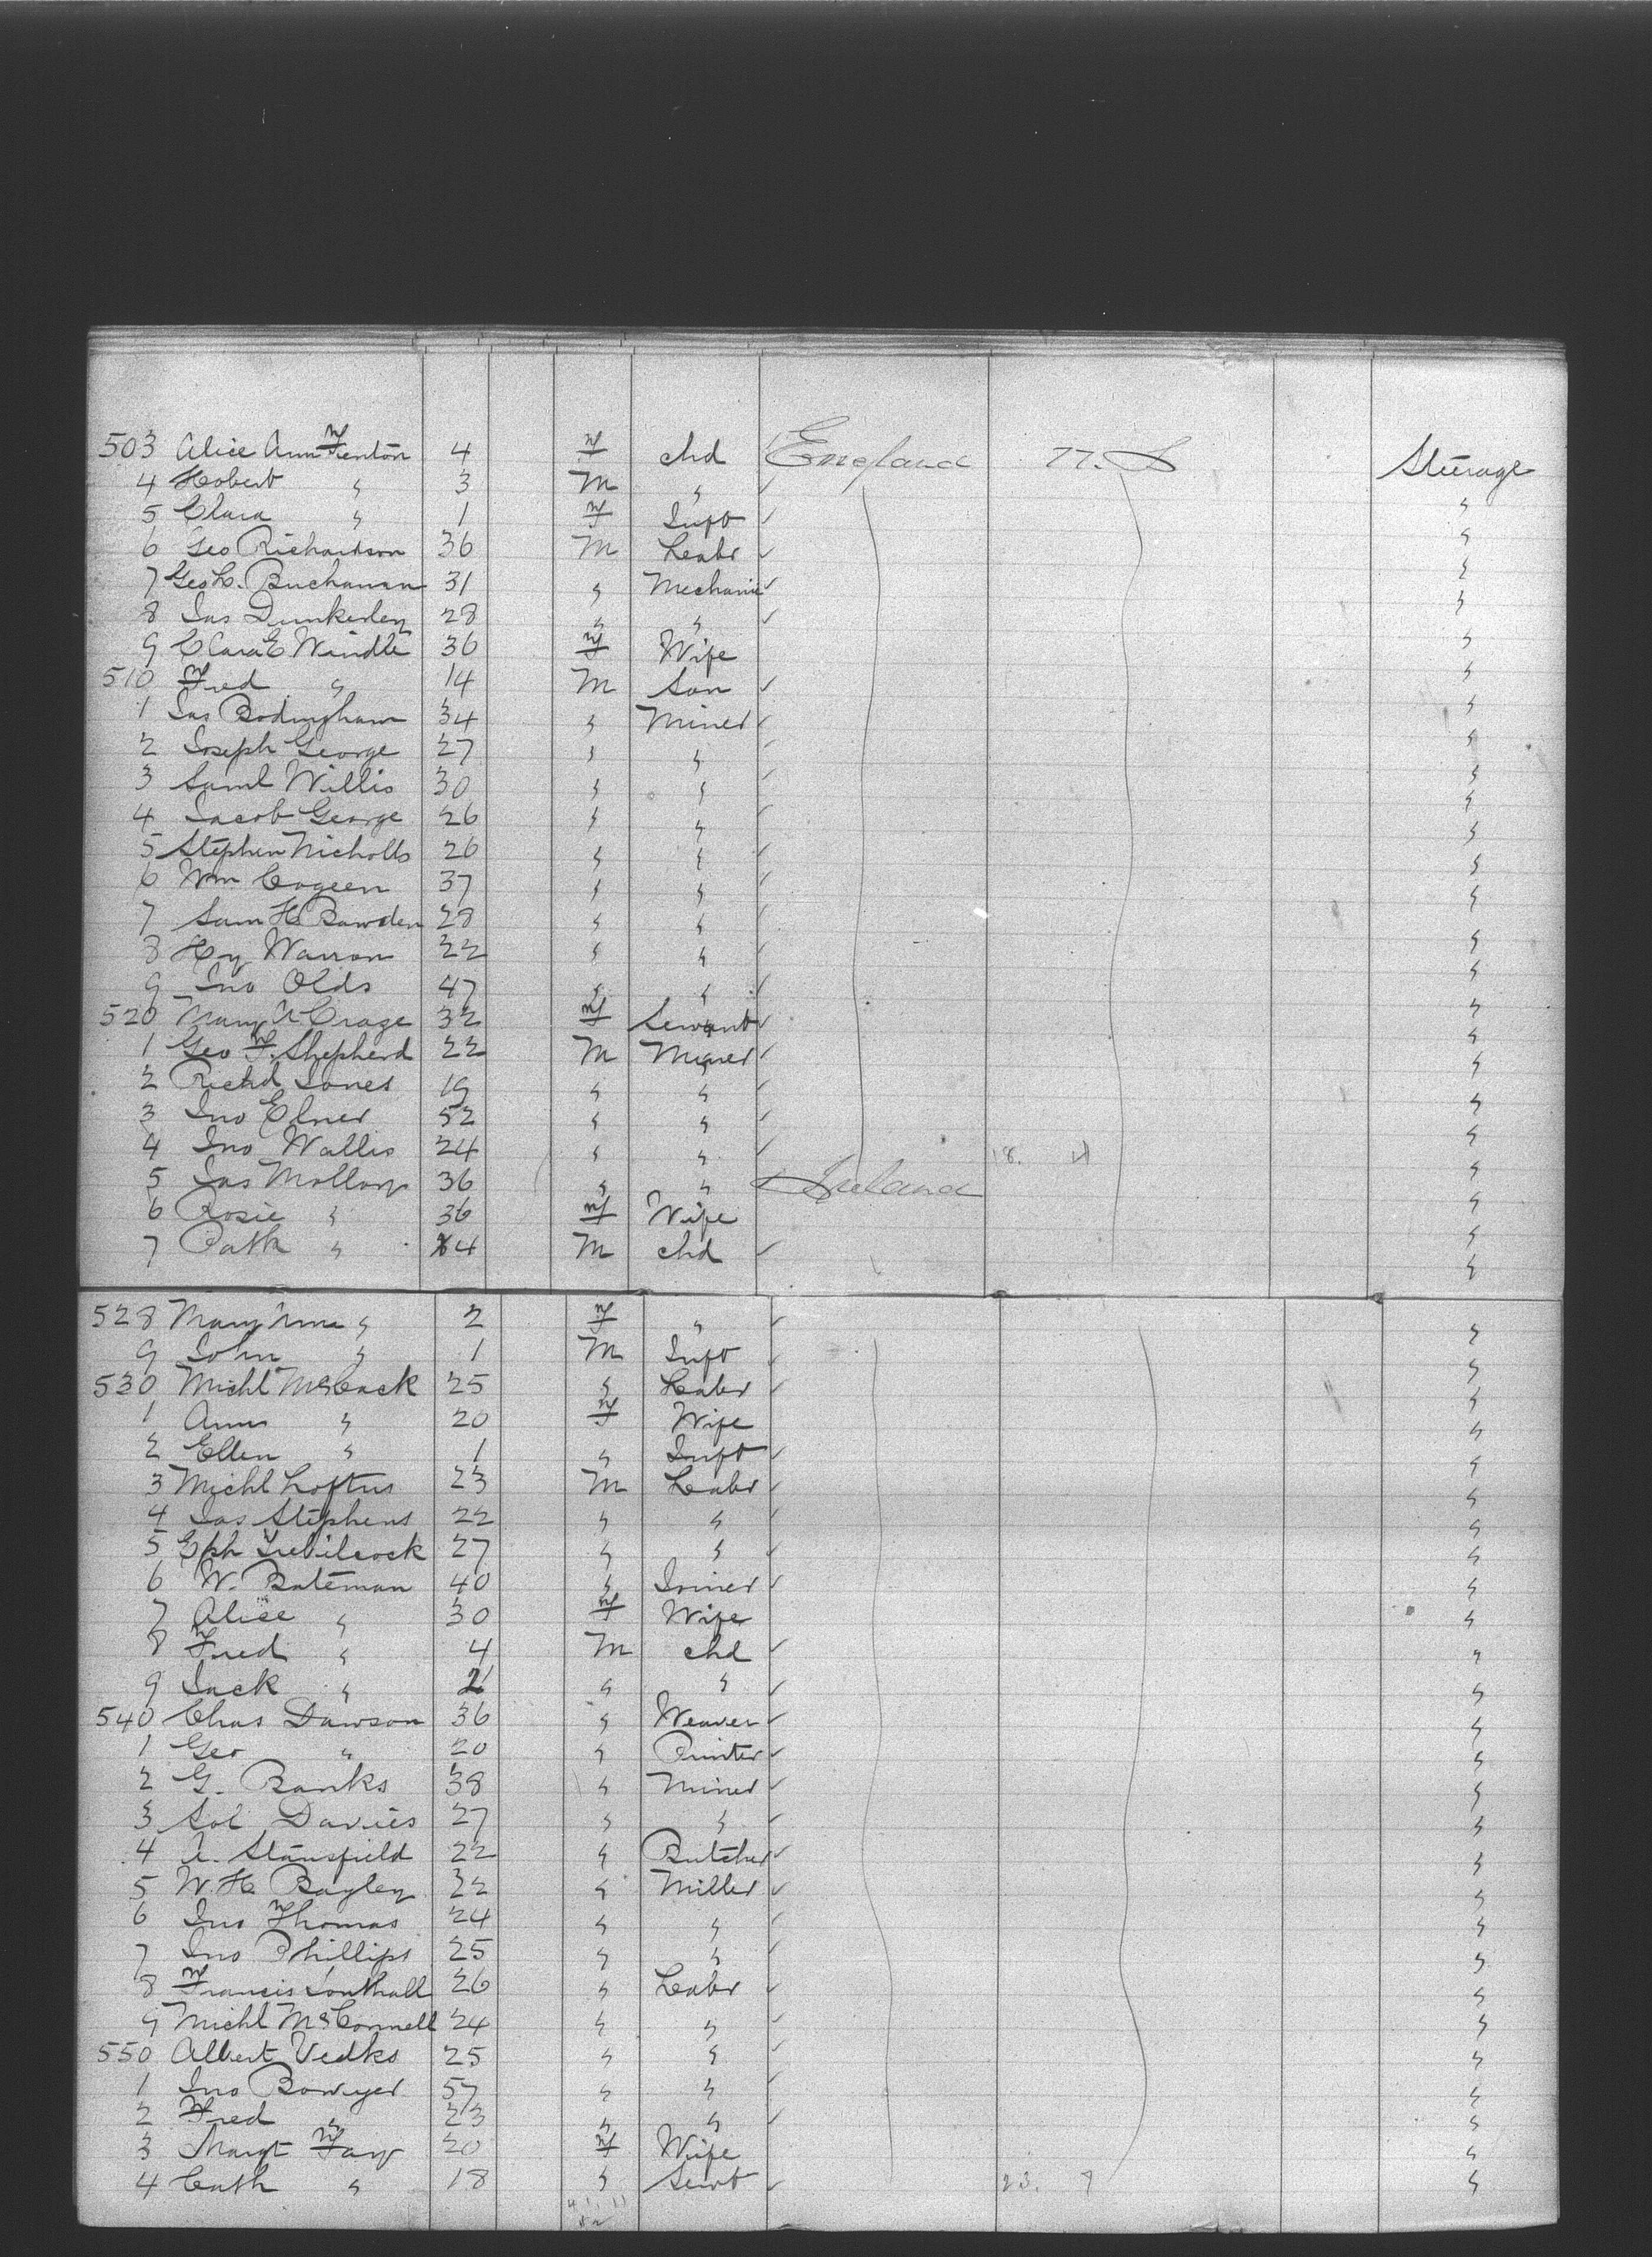 503 Alice Ann Fenton 4 F chd England U.S Steerage
4 Hobert " 3 M " "
5 Clara " 1 F Inft "
6 Geo Richardson 36 M Labr "
7 Geo L. Buchanan 31 " Mechanic "
8 Jas Dunkerley 28 " " "
9 Clara E Windle 36 F Wife "
510 Fred " 14 M Son "
1 Jas Bodingham 34 " Miner "
2 Joseph George 27 " " "
3 Saml Willis 30 " " "
4 Jacob George 26 " " "
5 Stephen Nicholls 26 " " "
6 Wm Cogeen 37 " " "
7 Sam H Bawden 28 " " "
8 Hy Warron 22 " " "
9 Jno Olds 47 " " "
520 Mary A Craze 32 F Servant "
1 Geo F. Shepherd 22 M Miner "
2 Richd Jones 19 " " "
3 Jno Elner 52 " " "
4 Jno Wallis 24 " " 18. "
5 Jas Molloy 36 " " Ireland "
6 Rosie " 36 F Wife "
7 Patk " 4 M chd "
528 Mary Ann " 2 F " "
9 John " 1 M Inft "
530 Michl McCack 25 " Labr "
1 Ann " 20 F Wife "
2 Ellen " 1 " Inft "
3 Michl Loftus 23 M Labr "
4 Jas Stephens 22 " " "
5 Eph Trebilcock 27 " " "
6 W. Bateman 40 " Joiner "
7 Alice " 30 F Wife "
8 Fred " 4 M chd "
9 Jack " 2 " " "
540 Chas Dawson 36 " Weaver "
1 Geo " 20 " Printer "
2 G. Banks 38 " Miner "
3 Sol Davies 27 " " "
4 A. Stansfield 22 " Butcher "
5 W. H. Bagley 22 " Miller "
6 Jno Thomas 24 " " "
7 Jno Phillips 25 " " "
8 Francis Southall 26 " Labr "
9 Michl McConnell 24 " " "
550 Albert Vedks 25 " " "
1 Jno Bowyer 57 " " "
2 Fred " 23 " " "
3 Margt Fay 20 F Wife "
4 Cath " 18 " Servt 23. 9 "